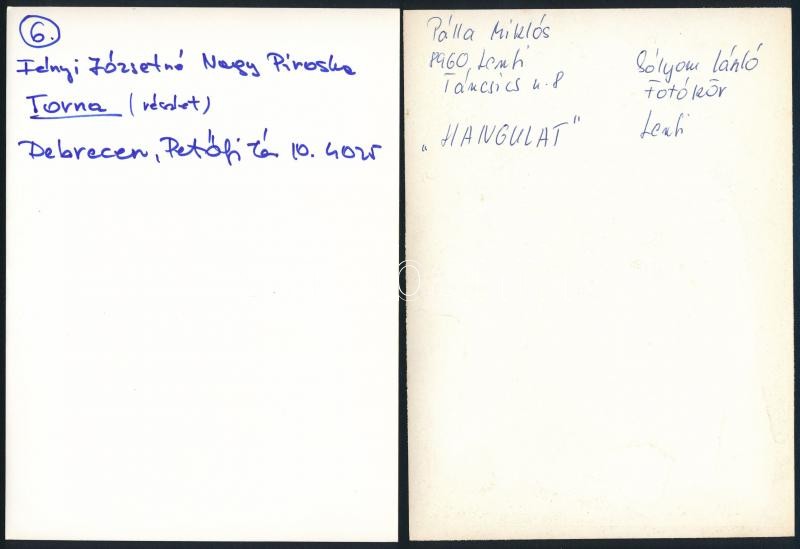 6.
Iényi Józsefné Nagy Piroska
Torna (részlet)
Debrecen, Petőfi tér 10. 4025
Pálla Miklós
8960 Lenti
Táncsics u. 8
„HANGULAT"
Sólyom László
Fotókör
Lenti